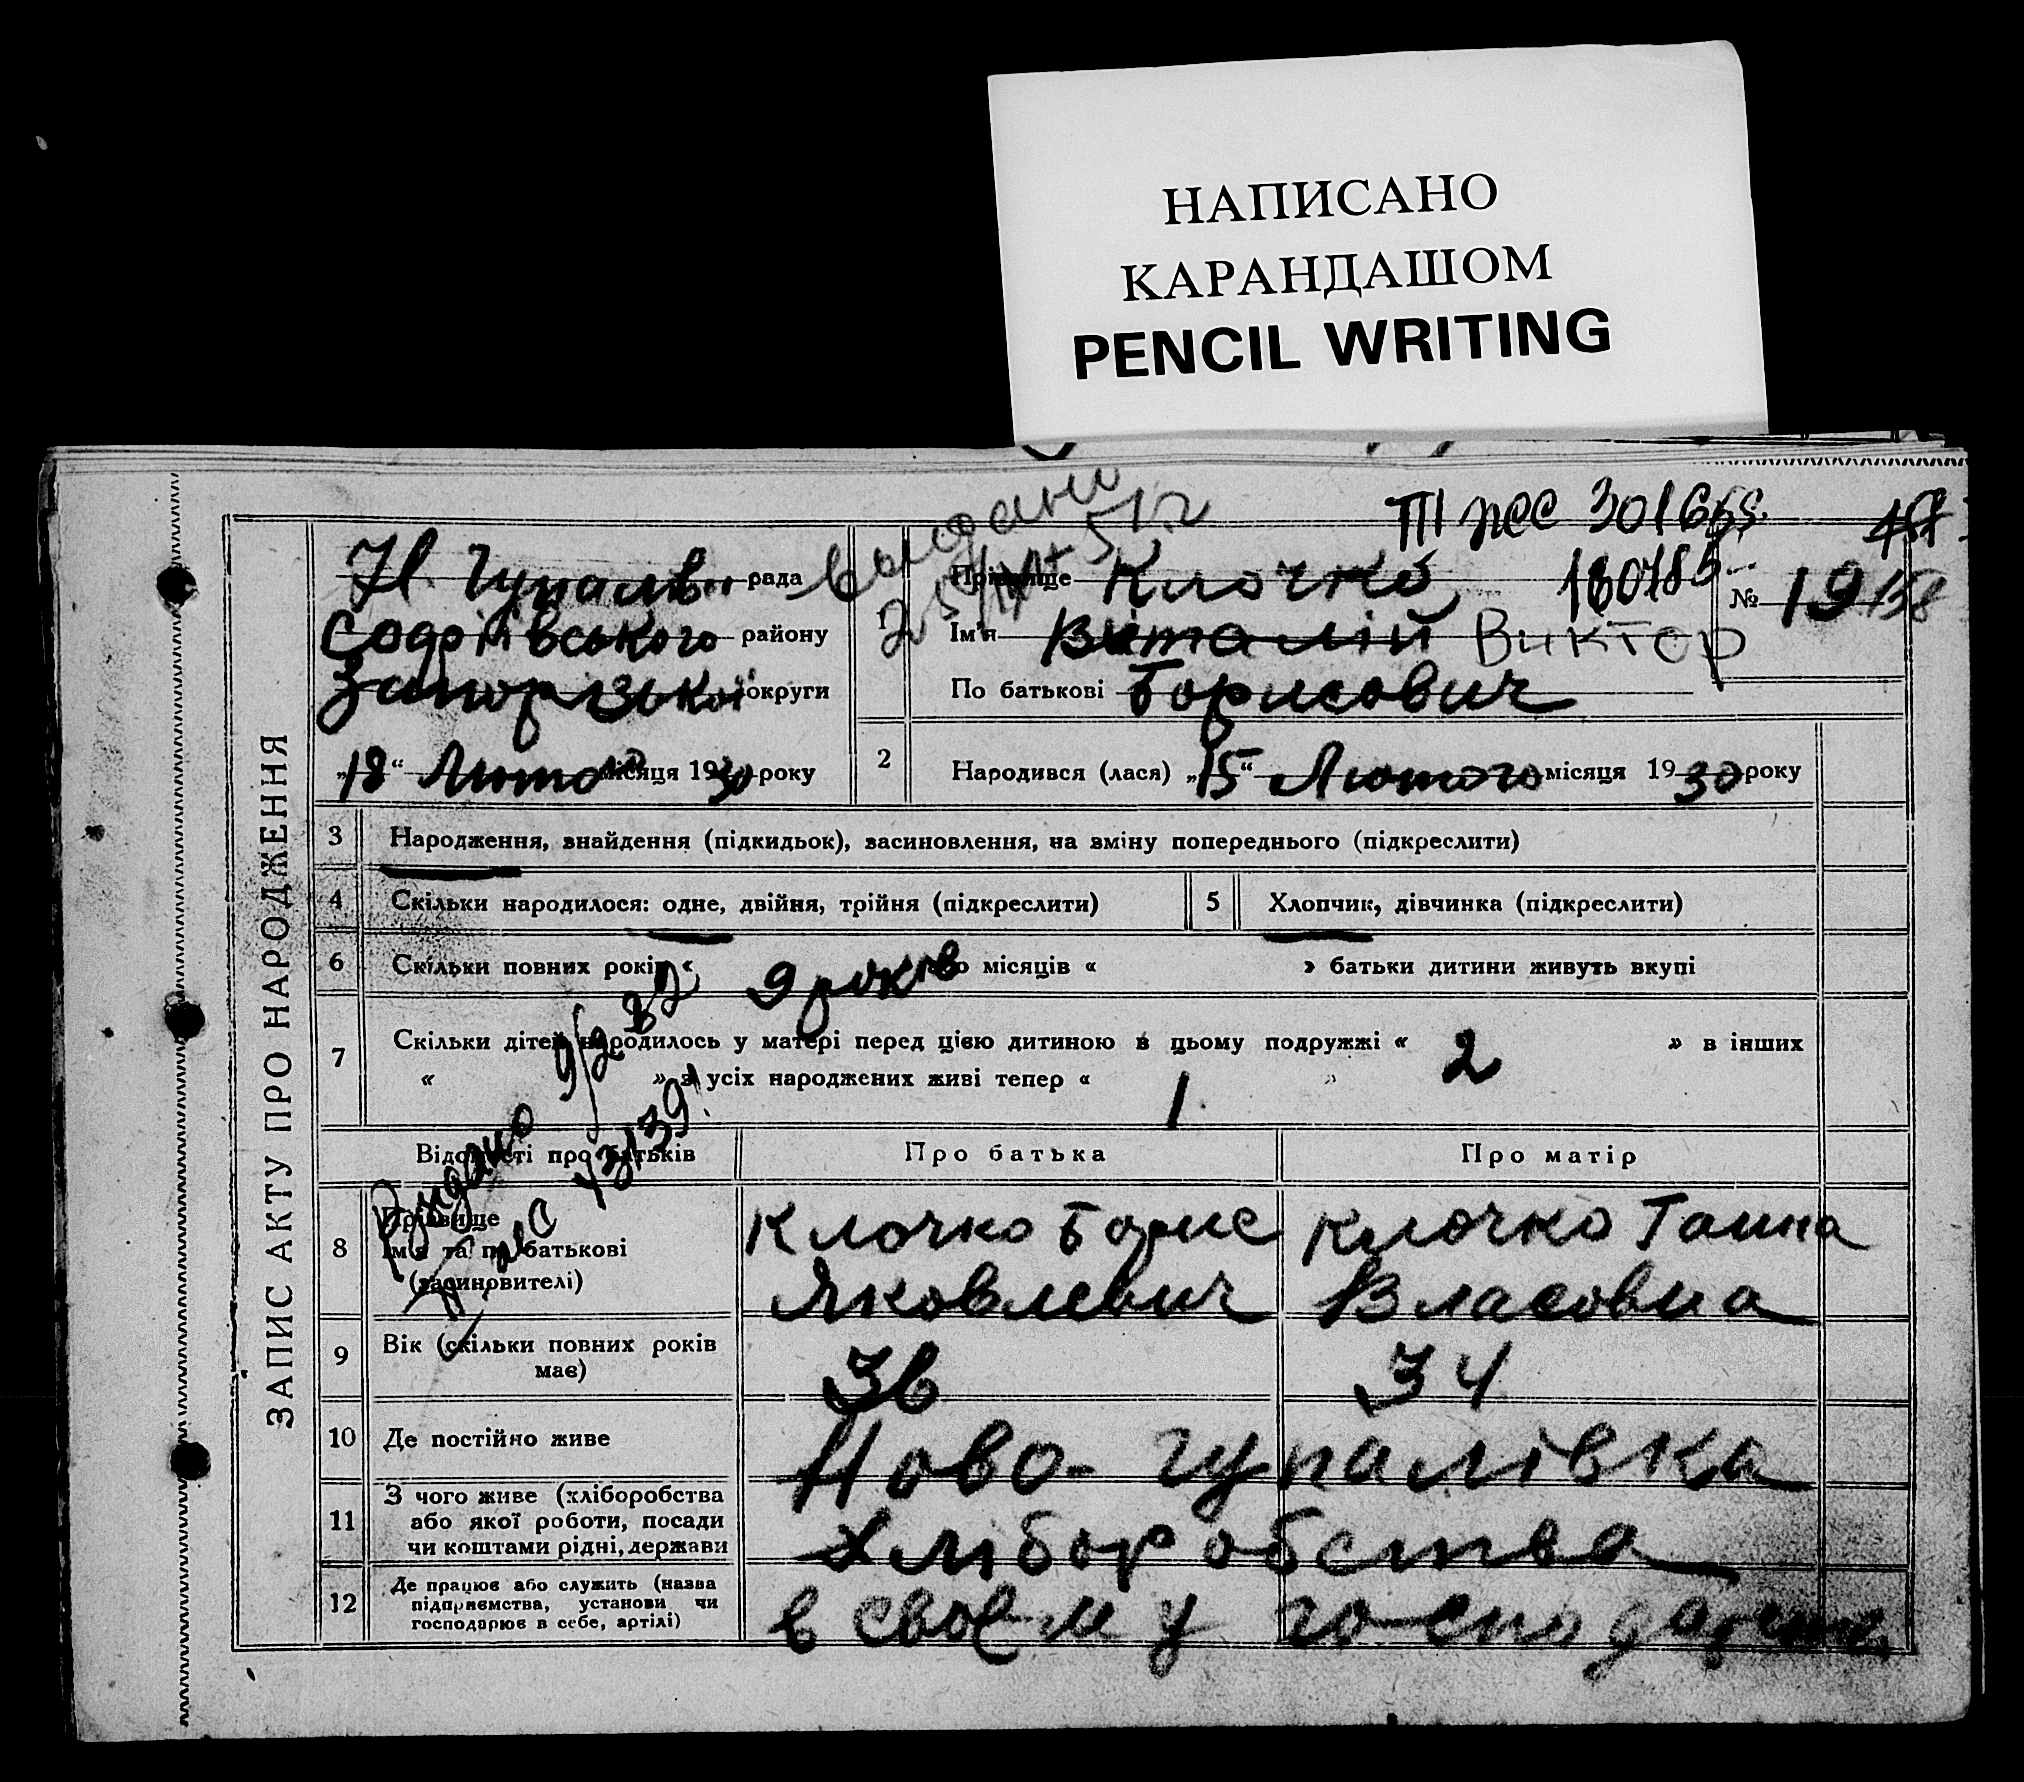 НАПИСАНО
КАРАНДАШОМ
PENCIL WRITING
ЗАПИС АКТУ ПРО НАРОДЖЕННЯ
Н. Гупалів рада
Софіївського району
Запорізької округи
„18“ Лютого місяця 1930 року
видано
25/IX 51 г
III ПСС 301655
180785
№ 19
1 Прізвище Клочко
Ім'я Віталій Виктор
По батькові Борисович
2 Народився (лася) „15“ Лютого місяця 1930 року
3 Народження, знайдення (підкидьок), засиновлення, на зміну попереднього (підкреслити)
4 Скільки народилося: одне, двійня, трійня (підкреслити)
5 Хлопчик, дівчинка (підкреслити)
6 Скільки повних років « 9 років місяців « » батьки дитини живуть вкупі
7 Скільки дітей народилось у матері перед цією дитиною в цьому подружжі « 2 » в інших
« » з усіх народжених живі тепер « 1 »
Видано
Відомості про батьків
Про батька
Про матір
8 Прізвище
Ім'я та по батькові
(засиновителі)
Клочко Борис
Яковлевич
Клочко Таина
Власовна
9 Вік (скільки повних років
має)
36
34
10 Де постійно живе
Ново-гупалівка
11 З чого живе (хліборобства
або якої роботи, посади
чи коштами рідні, держави
Хліборобства
12 Де працює або служить (назва
підприємства, установи чи
господарює в себе, артілі)
в своєму